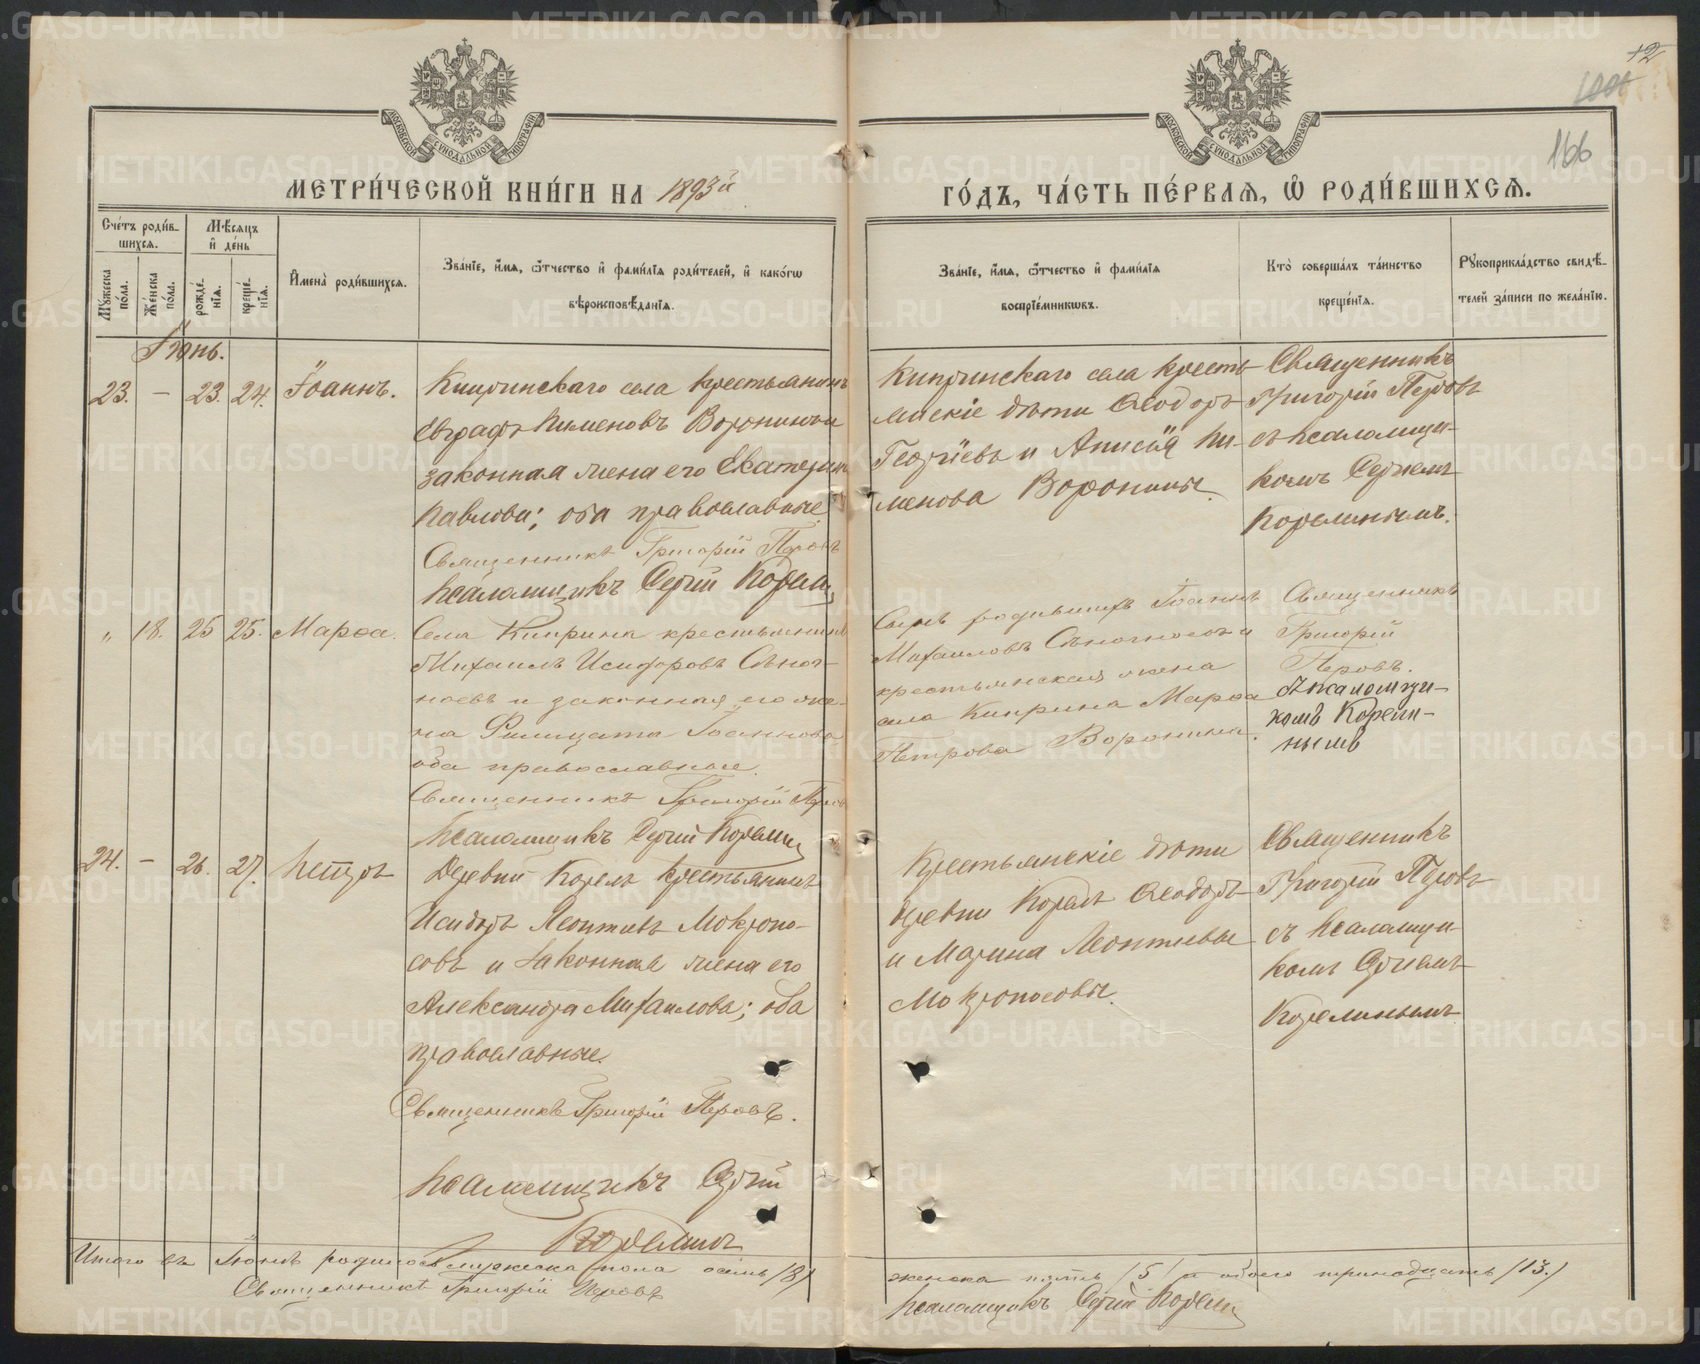 12
166
МЕТРИ́ЧЕСКОЙ КНИ́ГИ НА 1893й
ГО́ДЪ, ЧА́СТЬ ПЕ́РВАЯ, Ѽ РОДИ́ВШИХСЯ.
Сче́тъ роди́в-
шихся.
Мѣ́сяцъ
и҆ де́нь
Му́жеска по́ла.
Же́нска по́ла.
рожде́нїя.
креще́нїя.
И҆мена̀ роди́вшихся.
Зва́нїе, и҆́мя, ѻ҆́тчество и҆ фами́лїя роди́телей, и҆ како́гѡ
вѣроисповѣ́данїя.
Зва́нїе, и҆́мя, ѻ҆́тчество и҆ фами́лїя
воспрїе́мниковъ.
Кто̀ соверша́лъ та́инство
креще́нїя.
Рꙋкоприкла́дство свидѣ́-
телей за́писи по жела́нїю.
Іюнь.
23. — 23. 24. Іоаннъ.
Кипринскаго села крестьянинъ
Евграфъ Пименовъ Воронинъ и
законная жена его Екатерина
Павлова; оба православные.
Священникъ Григорій Перовъ
Псаломщикъ Сергій Корелин
Кипринскаго села кресть-
янскіе дѣти Ѳеодоръ
Георгіевъ и Анисія Пи-
менова Воронины.
Священникъ
Григорій Перовъ
съ псаломщи-
комъ Сергіемъ
Корелинымъ.
„ 18. 25 25. Марѳа.
Села Киприна крестьянинъ
Михаилъ Исидоровъ Сѣно-
носовъ и законная его же-
на Филицата Іоаннова
оба православные.
Священникъ Григорій Перовъ
Псаломщикъ Сергій Корелин
Сынъ родившихъ Іоаннъ
Михаиловъ Сѣноносовъ и
крестьянская жена
села Киприна Марѳа
Петрова Воронина.
Священникъ
Григорій
Перовъ.
Псаломщи-
комъ Корели-
нымъ
24. — 26. 27. Петръ
Деревни Корелъ крестьянинъ
Исидоръ Леонтіевъ Мокроно-
совъ и законная жена его
Александра Михаилова; оба
православные.
Священникъ Григорій Перовъ.
Псаломщикъ Сергій
Корелинъ
Крестьянскіе дѣти
деревни Корелъ Ѳеодоръ
и Марина Леонтіевы
Мокроносовы.
Священникъ
Григорій Перовъ
съ псаломщи-
комъ Сергіемъ
Корелинымъ
Итого въ Іюнѣ родилось мужеска пола осемь /8/
женска пять /5/ и обоего тринадцать /13./
Священникъ Григорій Перовъ
Псаломщикъ Сергій Корелин
METRIKI.GASO-URAL.RU